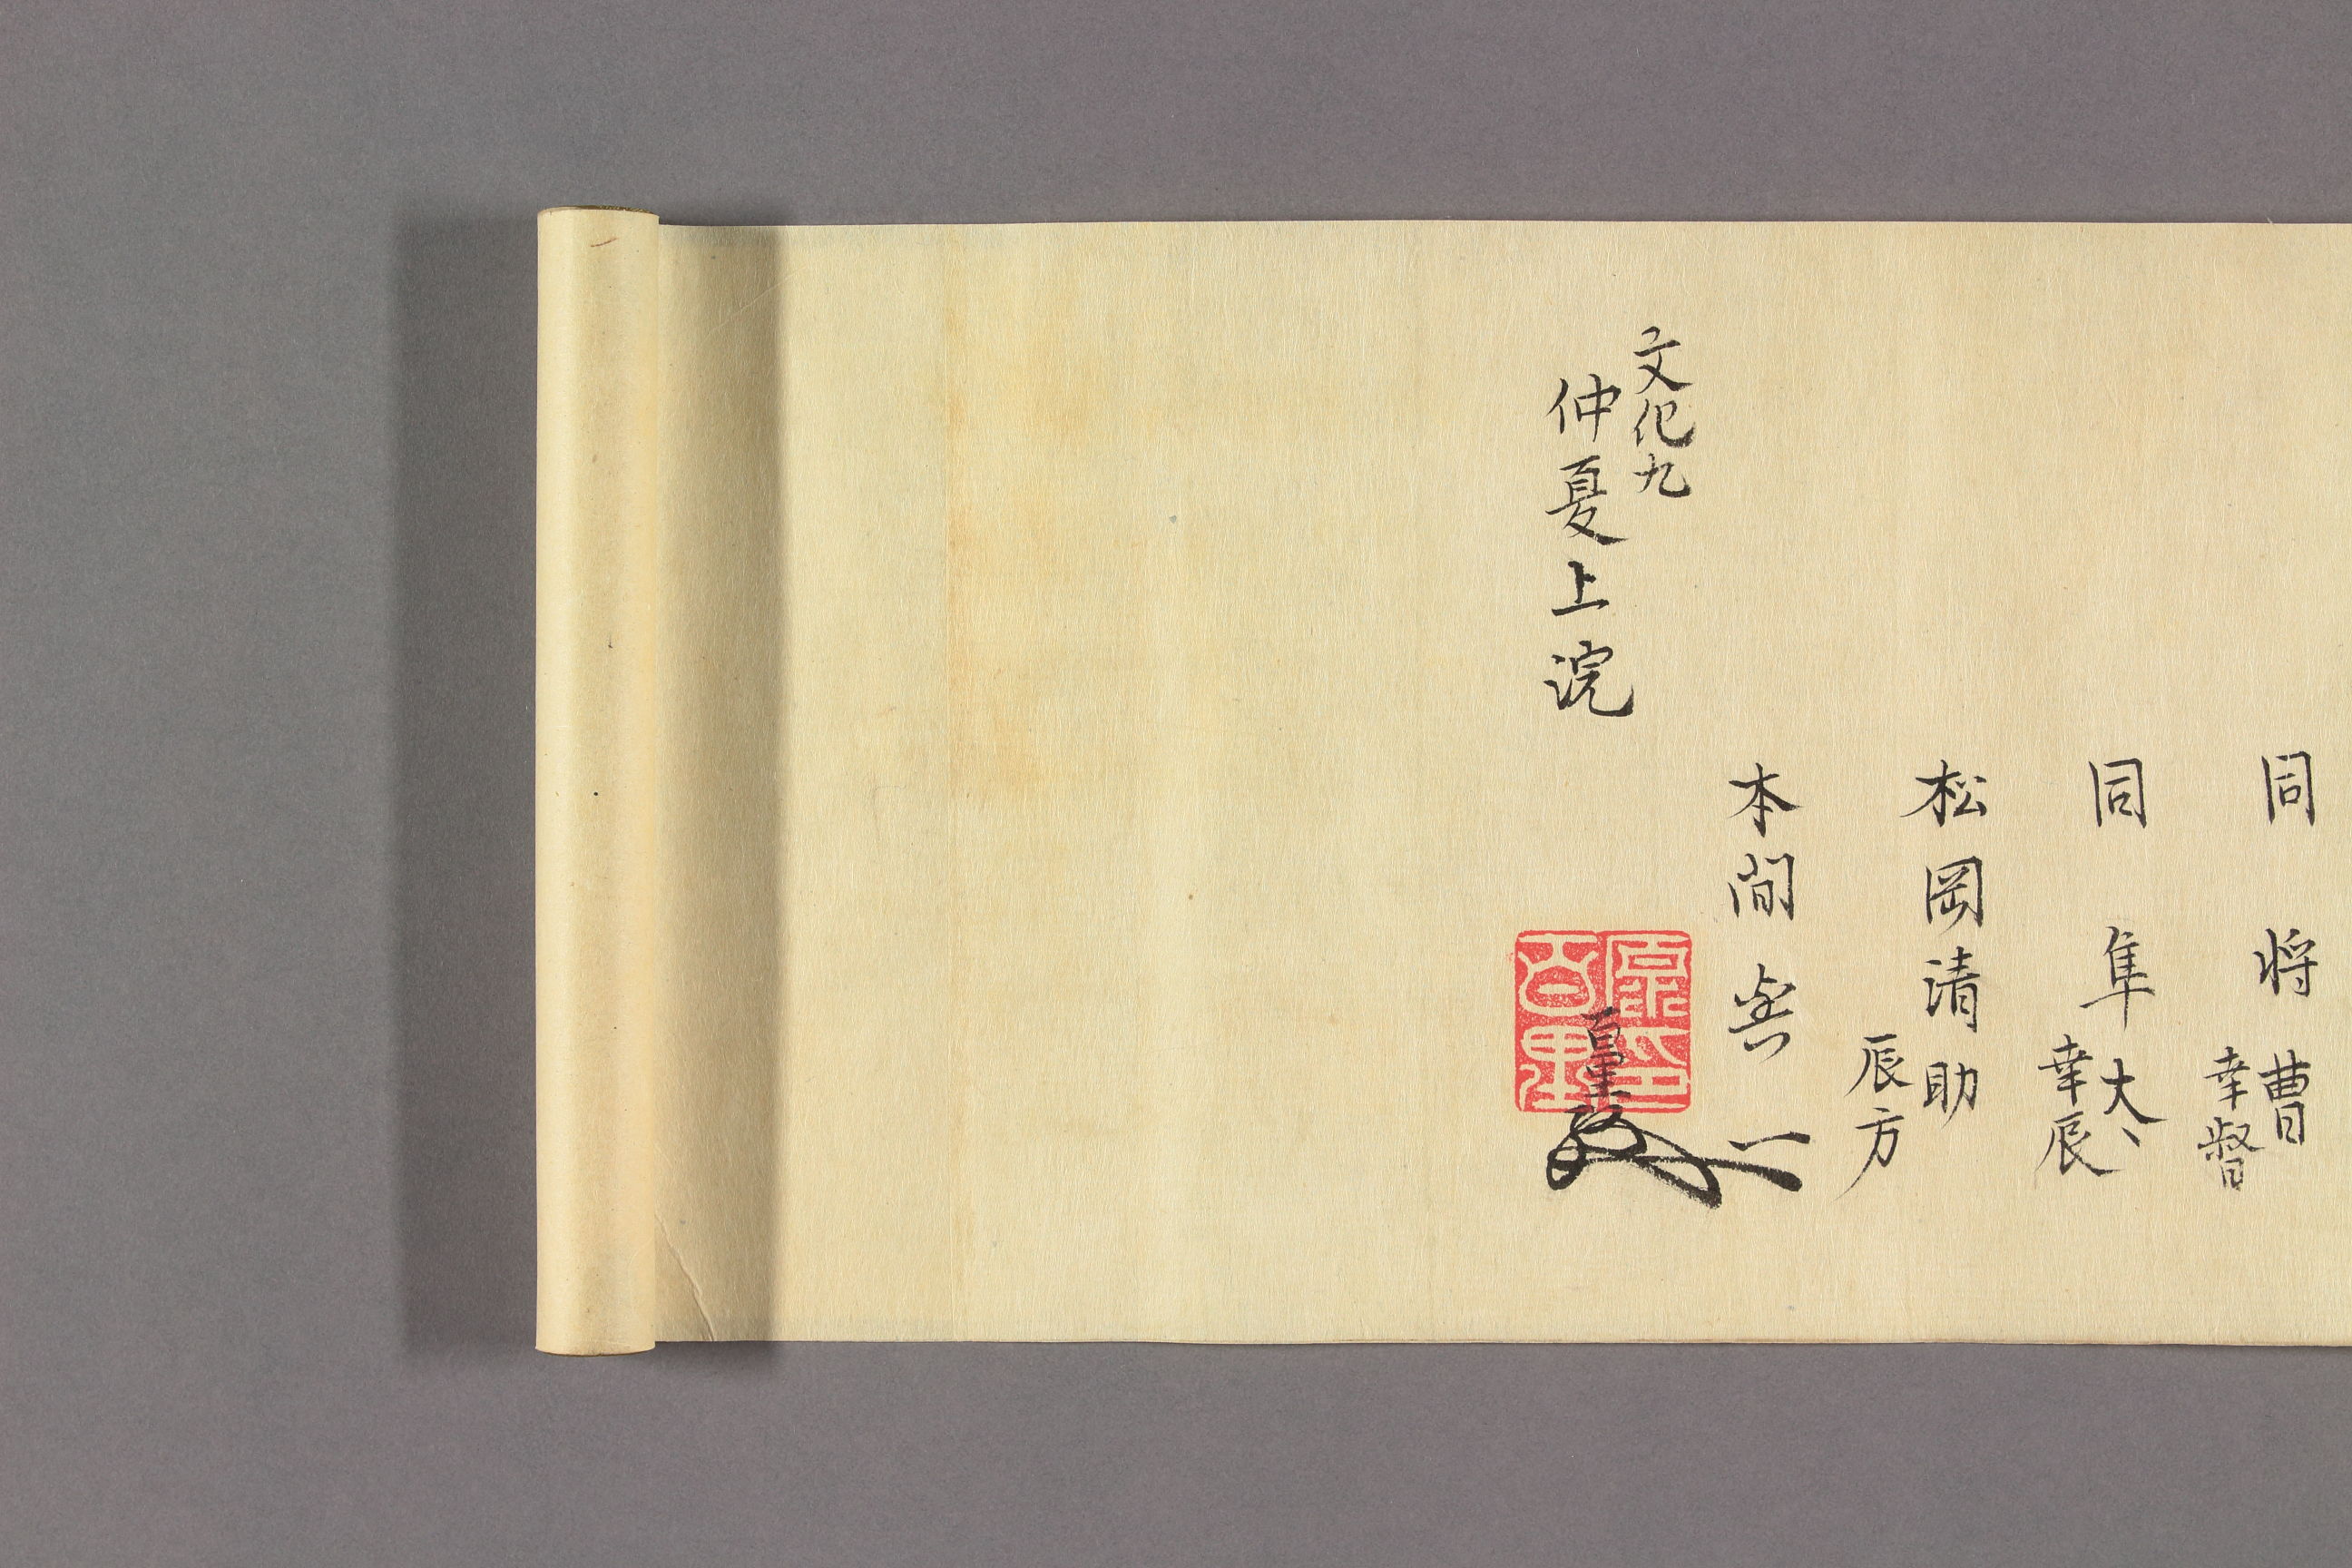 同 将曹
幸督
同 隼大丶
幸辰
松岡清助
辰方
本間
百里
文化九
仲夏上浣